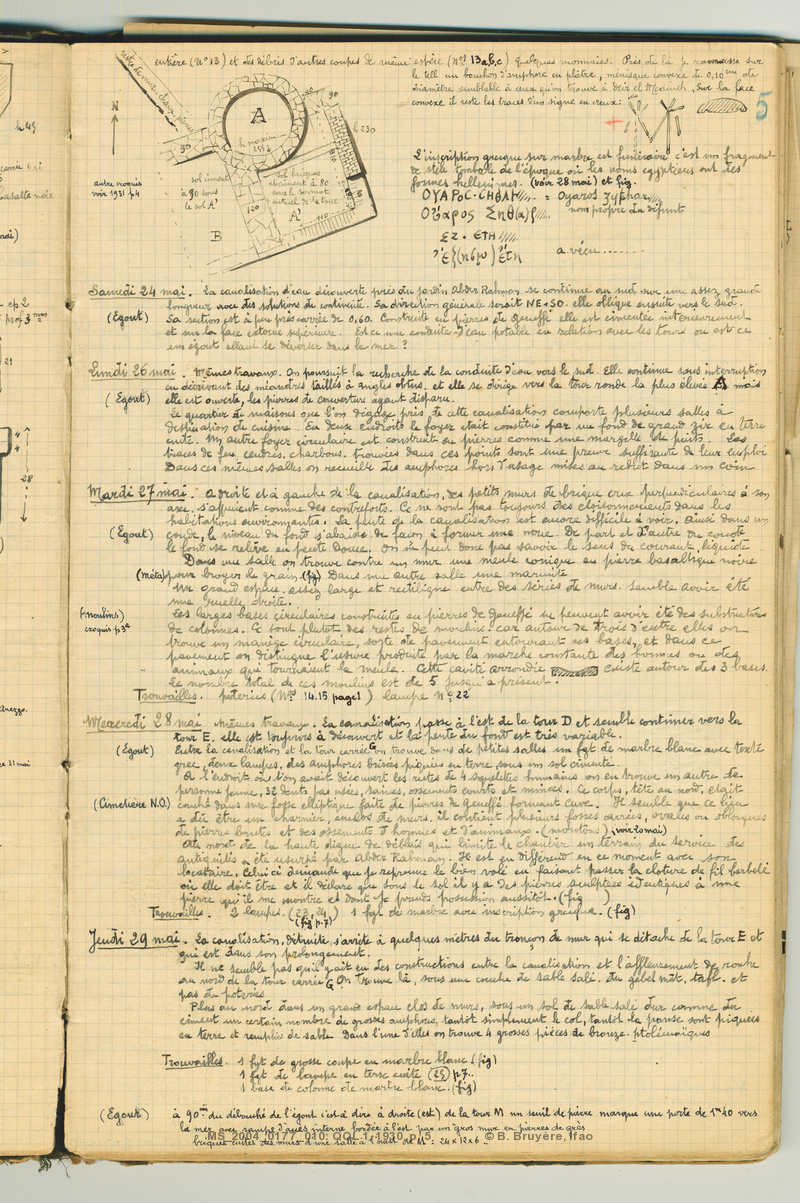 entière (N° 13) et des débris d'autres coupes de même espèce (Nos 13 a, b, c) quelques monnaies. Près de là je ramasse sur
le tell un bouchon d'amphore en plâtre, ménisque convexe de 0,10 cm de
diamètre semblable à ceux qu'on trouve à Deir el Medineh, sur la face
convexe il reste les traces d'un signe en creux:
5
reste de mur chaux pierres
N
autre croquis
voir 1931 p4
A
h maxim
255
90
90
h 230
sol ciment
à 90 sous
le sol A'
sol briques
et ciment à 80
sous le sommet
actuel de la tour
120
A'
110
B
L'inscription grecque sur marbre est funéraire c'est un fragment
de stèle tombale de l'époque où les noms égyptiens ont des
formes helléniques. (voir 28 mai) et fig.
ΟΥΑΡΟC·CΗΘΛΗ = Ouaros
Οὐᾶρος Σηθ(λ) nom propre du défunt
ΕΖ· ΕΤΗ
a vécu .......
Samedi 24 mai. La canalisation d'eau découverte près du jardin Abder Rahman se continue au sud sur une assez grande
longueur avec des solutions de continuité. Sa direction générale serait NE-SO. elle oblique ensuite vers le sud.
(Egout) Sa section est à peu près carrée de 0,60. Construite en pierres de Gueffé elle est cimentée intérieurement
et sur la face externe supérieure. Est ce une conduite d'eau potable en relation avec les tours ou est ce
un égout allant se déverser dans la mer ?
Lundi 26 mai. Mêmes travaux. On poursuit la recherche de la conduite d'eau vers le sud. Elle continue sans interruption
en décrivant des méandres taillés à angles obtus, et elle se dirige vers la tour ronde la plus élevée A mais
(Egout) elle est ouverte, les pierres de couverture ayant disparu.
Le quartier de maisons que l'on dégage près de cette canalisation comporte plusieurs salles à
destination de cuisine. En deux endroits le foyer était constitué par un fond de grand zir en terre
cuite. Un autre foyer circulaire est construit en pierres comme une margelle de puits. Les
traces de feu, cendres, charbons, trouvées dans ces points sont une preuve suffisante de leur emploi
Dans ces mêmes salles on recueille des amphores hors d'usage mises au rebut dans un coin
Mardi 27 mai. A droite et à gauche de la canalisation, des petits murs de brique crue perpendiculaires à son
axe, s'appuient comme des contreforts. Ce ne sont pas toujours des cloisonnements dans les
habitations environnantes. La pente de la canalisation est encore difficile à voir. Ainsi dans un
(Egout) coude, le niveau du fond s'abaisse de façon à former une noue. De part et d'autre du coude
le fond se relève en pente douce. On ne peut donc pas savoir le sens du courant liquide
Dans une salle on trouve contre un mur une meule conique en pierre basaltique noire
(méta) pour broyer le grain (fig) Dans une autre salle une marmite
Un grand espace assez large et rectiligne entre des séries de murs semble avoir été
une ruelle droite.
(moulins) Les larges bases circulaires construites en pierres de Goueffé ne peuvent avoir été des substructures
croquis p3a de colonnes. Ce sont plutôt des restes de moulins car autour de trois d'entre elles on
trouve un manège circulaire, sorte de pavement entourant ces bases, et dans ce
pavement on distingue l'usure produite par la marche constante des hommes ou des
animaux qui tournaient la meule. Cette cavité arrondie existe autour des 3 bases.
Le nombre total de ces moulins est de 5 jusqu'à présent.
Trouvailles. poteries (Nos 14.15 page 1) lampe N° 22
Mercredi 28 mai Mêmes travaux. La canalisation passe à l'est de la tour D et semble continuer vers la
tour E. elle est toujours à découvert et la pente du fond est très variable.
(Egout) Entre la canalisation et la tour carrée G on trouve dans de petites salles un fgt de marbre blanc avec texte
grec, deux lampes, des amphores brisées piquées en terre, sous un sol cimenté.
A l'endroit où l'on avait découvert les restes de 4 squelettes humains on en trouve un autre de
personne jeune, 32 dents pas usées, saines, ossements courts et minces. Ce corps, tête au nord, était
(Cimetière N.O.) couché dans une fosse elliptique faite de pierres de Gueffé formant cuve. Il semble que ce lieu
a dû être un charnier, enclos de murs. il contient plusieurs fosses carrées, ovales ou oblongues
de pierres brutes et des ossements d'hommes et d'animaux. (moutons) (voir 10 mai)
Au nord de la haute digue de déblais qui limite le chantier un terrain du service des
antiquités a été usurpé par Abder Rahman. Il est en différend en ce moment avec son
locataire. Celui ci demande que je reprenne le bien volé en faisant passer la cloture de fil barbelé
où elle doit être et il déclare que sous le sol il y a des pierres sculptées identiques à une
pierre qu'il me montre et dont je prends possession aussitôt. (fig )
Trouvailles. 2 lampes. (23, 24) 1 fgt de marbre avec inscription grecque. (fig)
(fig p.7)
Jeudi 29 mai. La canalisation, détruite, s'arrête à quelques mètres du tronçon de mur qui se détache de la tour E et
qui est dans son prolongement.
Il ne semble pas qu'il y ait eu des constructions entre la canalisation et l'affleurement de roche
au nord de la tour carrée G On trouve là, sous une couche de sable salé du gebel mût, tafl. et
pas de poteries
Plus au nord dans un grand espace clos de murs, sous un sol de sable salé dur comme du
ciment un certain nombre de grosses amphores, tantôt simplement le col, tantôt la panse sont piquées
en terre et remplies de sable. Dans l'une d'elles on trouve 4 grosses pièces de bronze. ptolémaïques
Trouvailles. 1 fgt de grosse coupe en marbre blanc (fig)
1 fgt de lampe en terre cuite (25) p7.
1 base de colonne de marbre blanc. (fig)
(Egout) à 90m du débouché de l'égout c'est à dire à droite (est) de la tour M un seuil de pierre marque une porte de 1m40 vers
la mer avec rampe d'accès interne bordée à l'est par un gros mur en pierres de grès
briques cuites des murs d'une salle à l'ouest de M : 24 x 12 x 6
MS_2004_0177_010: QOL.1, 1930, p. 5 © B. Bruyère, Ifao